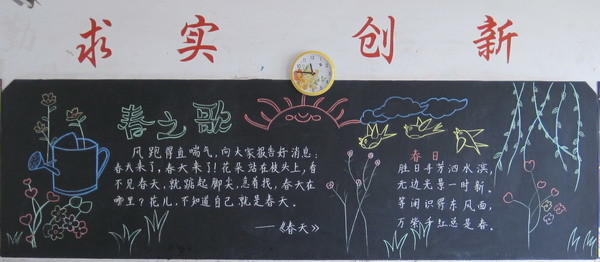 求实 创新
春之歌
风跑得直喘气，向大家报告好消息：
春天来了，春天来了！花朵站在枝头上，看
不见春天，就踮起脚尖，急着找，春天在
哪里？花儿，不知道自己就是春天。
——《春天》
春日
胜日寻芳泗水滨，
无边光景一时新。
等闲识得东风面，
万紫千红总是春。